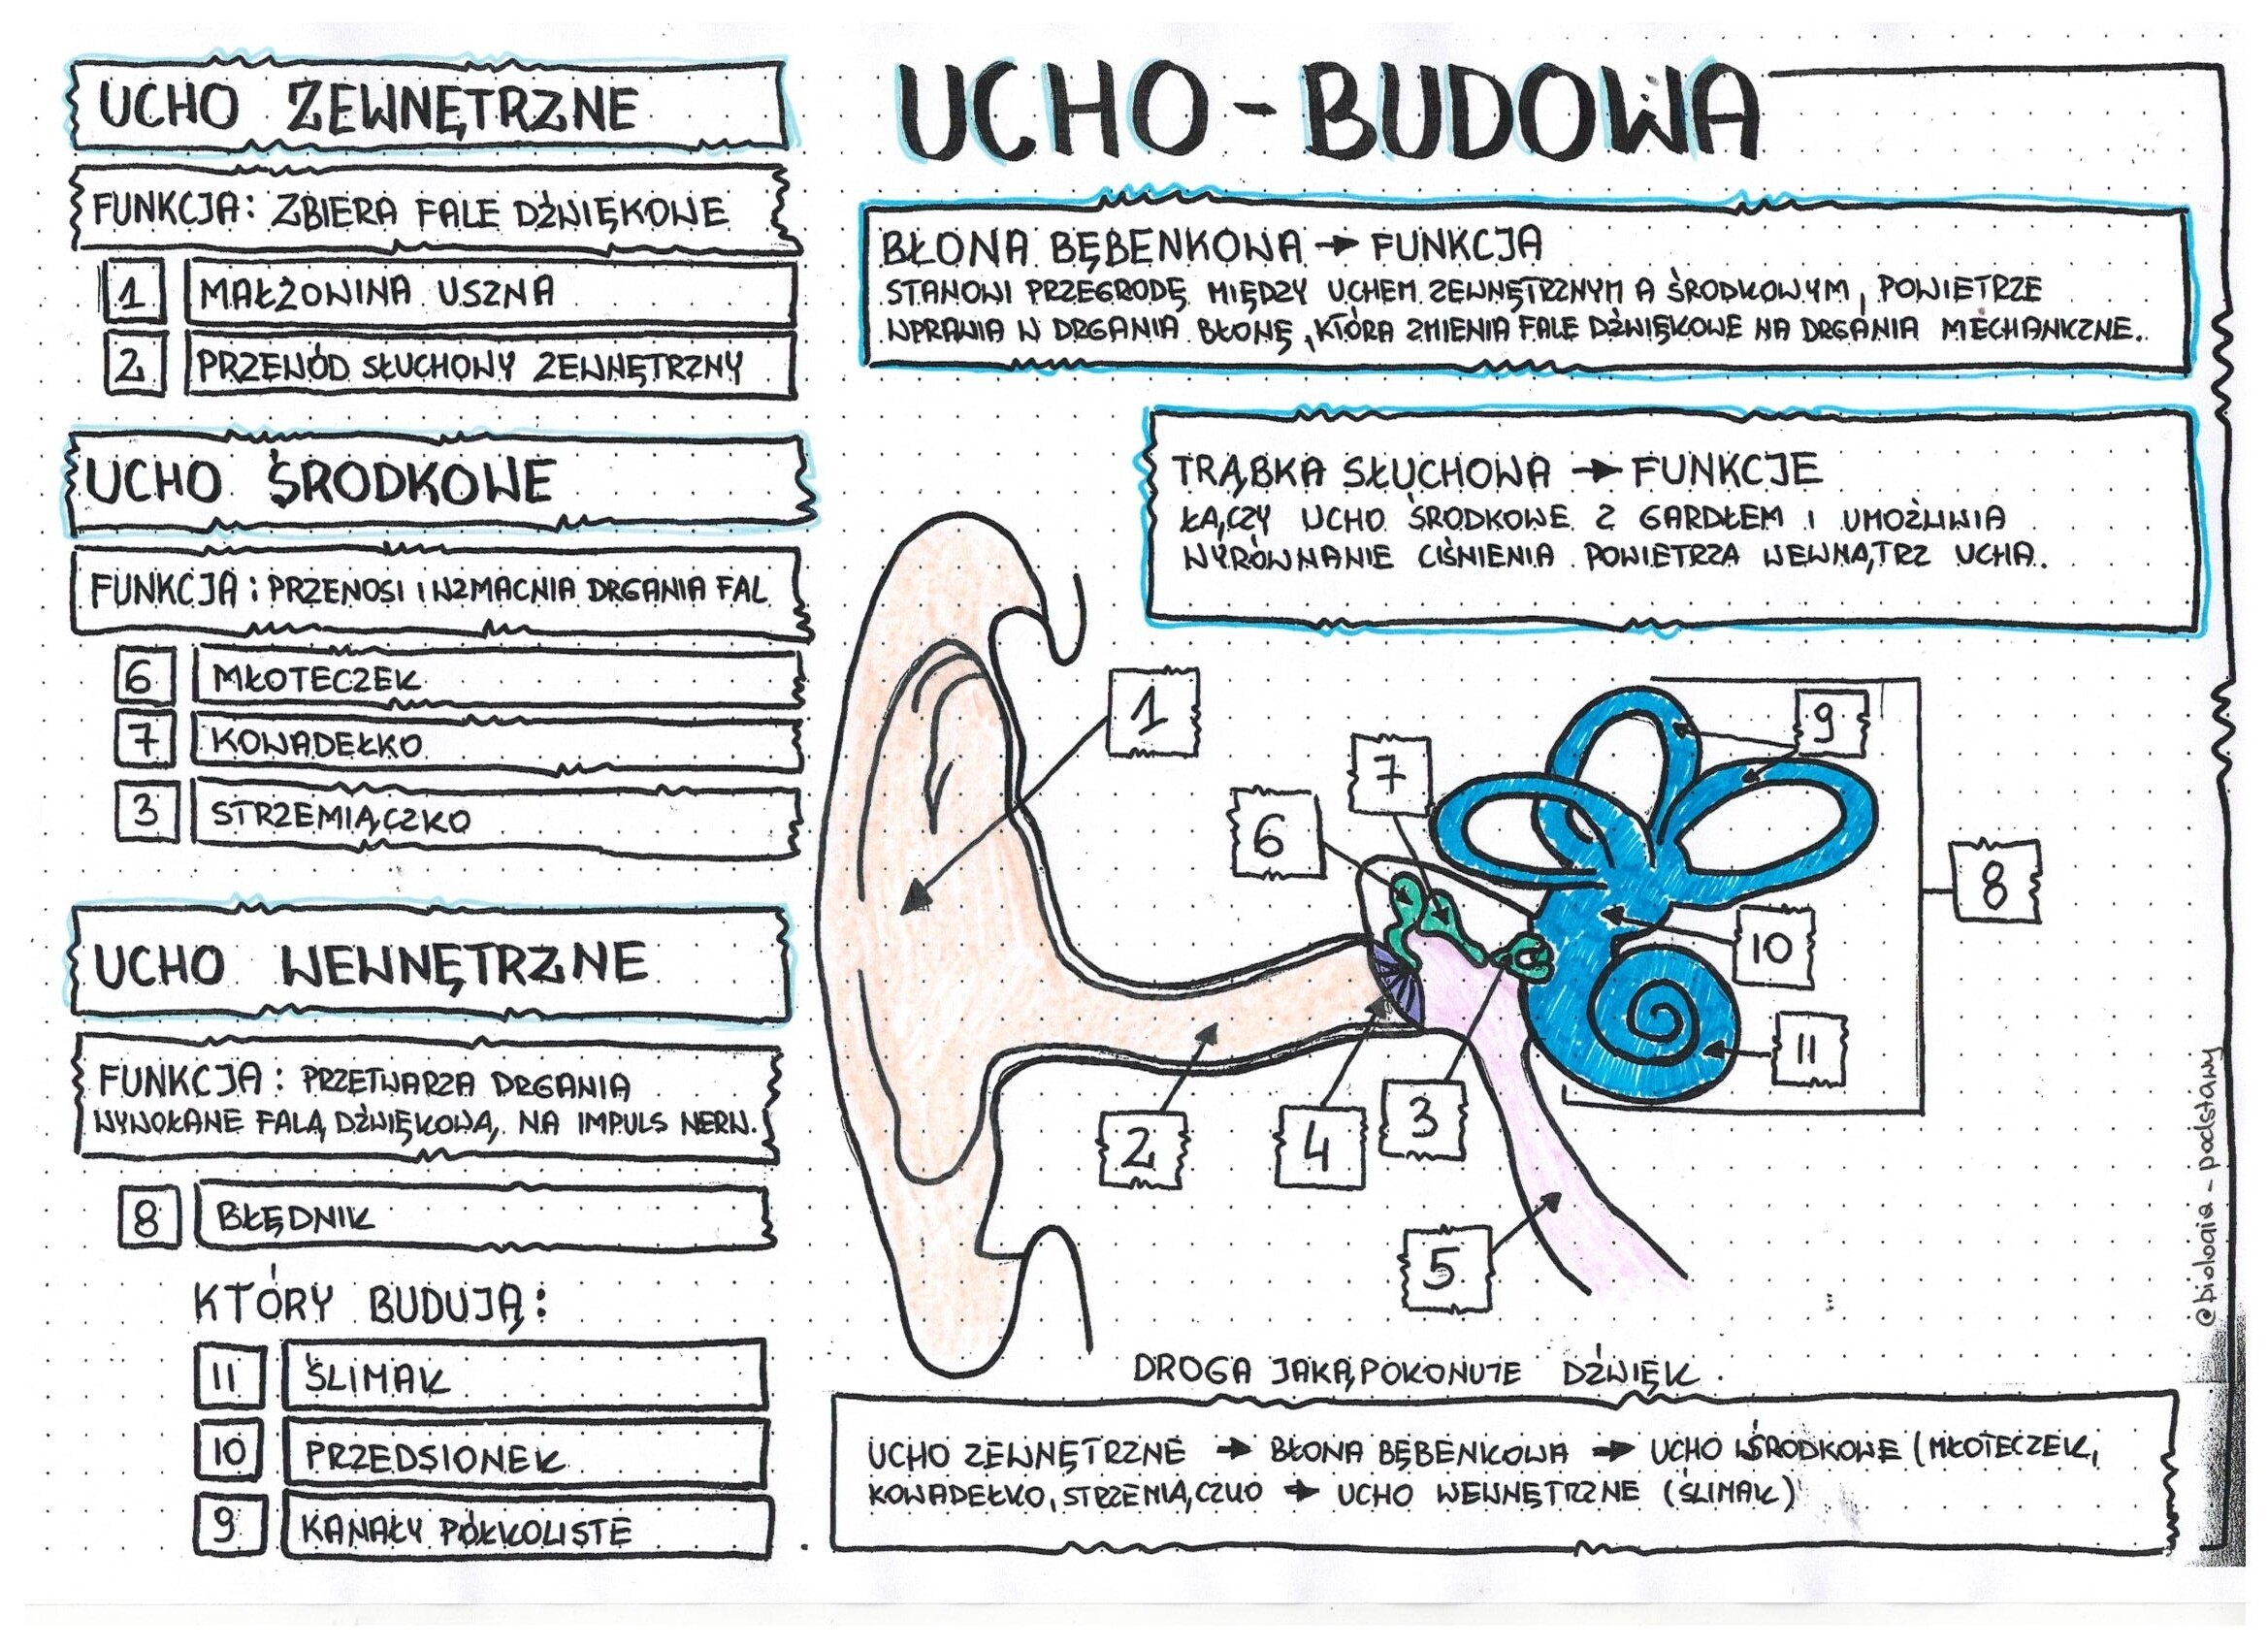 UCHO ZEWNĘTRZNE
FUNKCJA: ZBIERA FALE DŹWIĘKOWE
1 MAŁŻOWINA USZNA
2 PRZEWÓD SŁUCHOWY ZEWNĘTRZNY
UCHO ŚRODKOWE
FUNKCJA: PRZENOSI I WZMACNIA DRGANIA FAL
6 MŁOTECZEK
7 KOWADEŁKO
3 STRZEMIĄCZKO
UCHO WEWNĘTRZNE
FUNKCJA: PRZETWARZA DRGANIA
WYWOŁANE FALĄ DŹWIĘKOWĄ NA IMPULS NERW.
8 BŁĘDNIK
KTÓRY BUDUJĄ:
11 ŚLIMAK
10 PRZEDSIONEK
9 KANAŁY PÓŁKOLISTE
UCHO - BUDOWA
BŁONA BĘBENKOWA → FUNKCJA
STANOWI PRZEGRODĘ MIĘDZY UCHEM ZEWNĘTRZNYM A ŚRODKOWYM, POWIETRZE
WPRAWIA W DRGANIA BŁONĘ, KTÓRA ZMIENIA FALE DŹWIĘKOWE NA DRGANIA MECHANKZNE.
TRĄBKA SŁUCHOWA → FUNKCJE
ŁĄCZY UCHO ŚRODKOWE Z GARDŁEM I UMOŻLIWIA
WYRÓWNANIE CIŚNIENIA POWIETRZA WEWNĄTRZ UCHA.
1
9
7
6
8
10
11
3
2
4
5
DROGA JAKĄ POKONUJE DŹWIĘK.
UCHO ZEWNĘTRZNE → BŁONA BĘBENKOWA → UCHO ŚRODKOWE (MŁOTECZEK,
KOWADEŁKO, STRZEMIĄCZKO → UCHO WEWNĘTRZNE (ŚLIMAK)
@biologia - podstawy